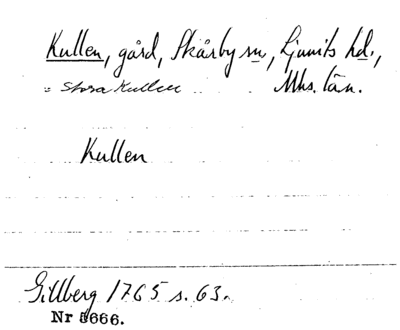 Kullen, gård, Skårby sn, Ljunits hd.,
= Stora Kullen Mhs. län.
Kullen
Gillberg 1765 s. 63.
Nr 5666.